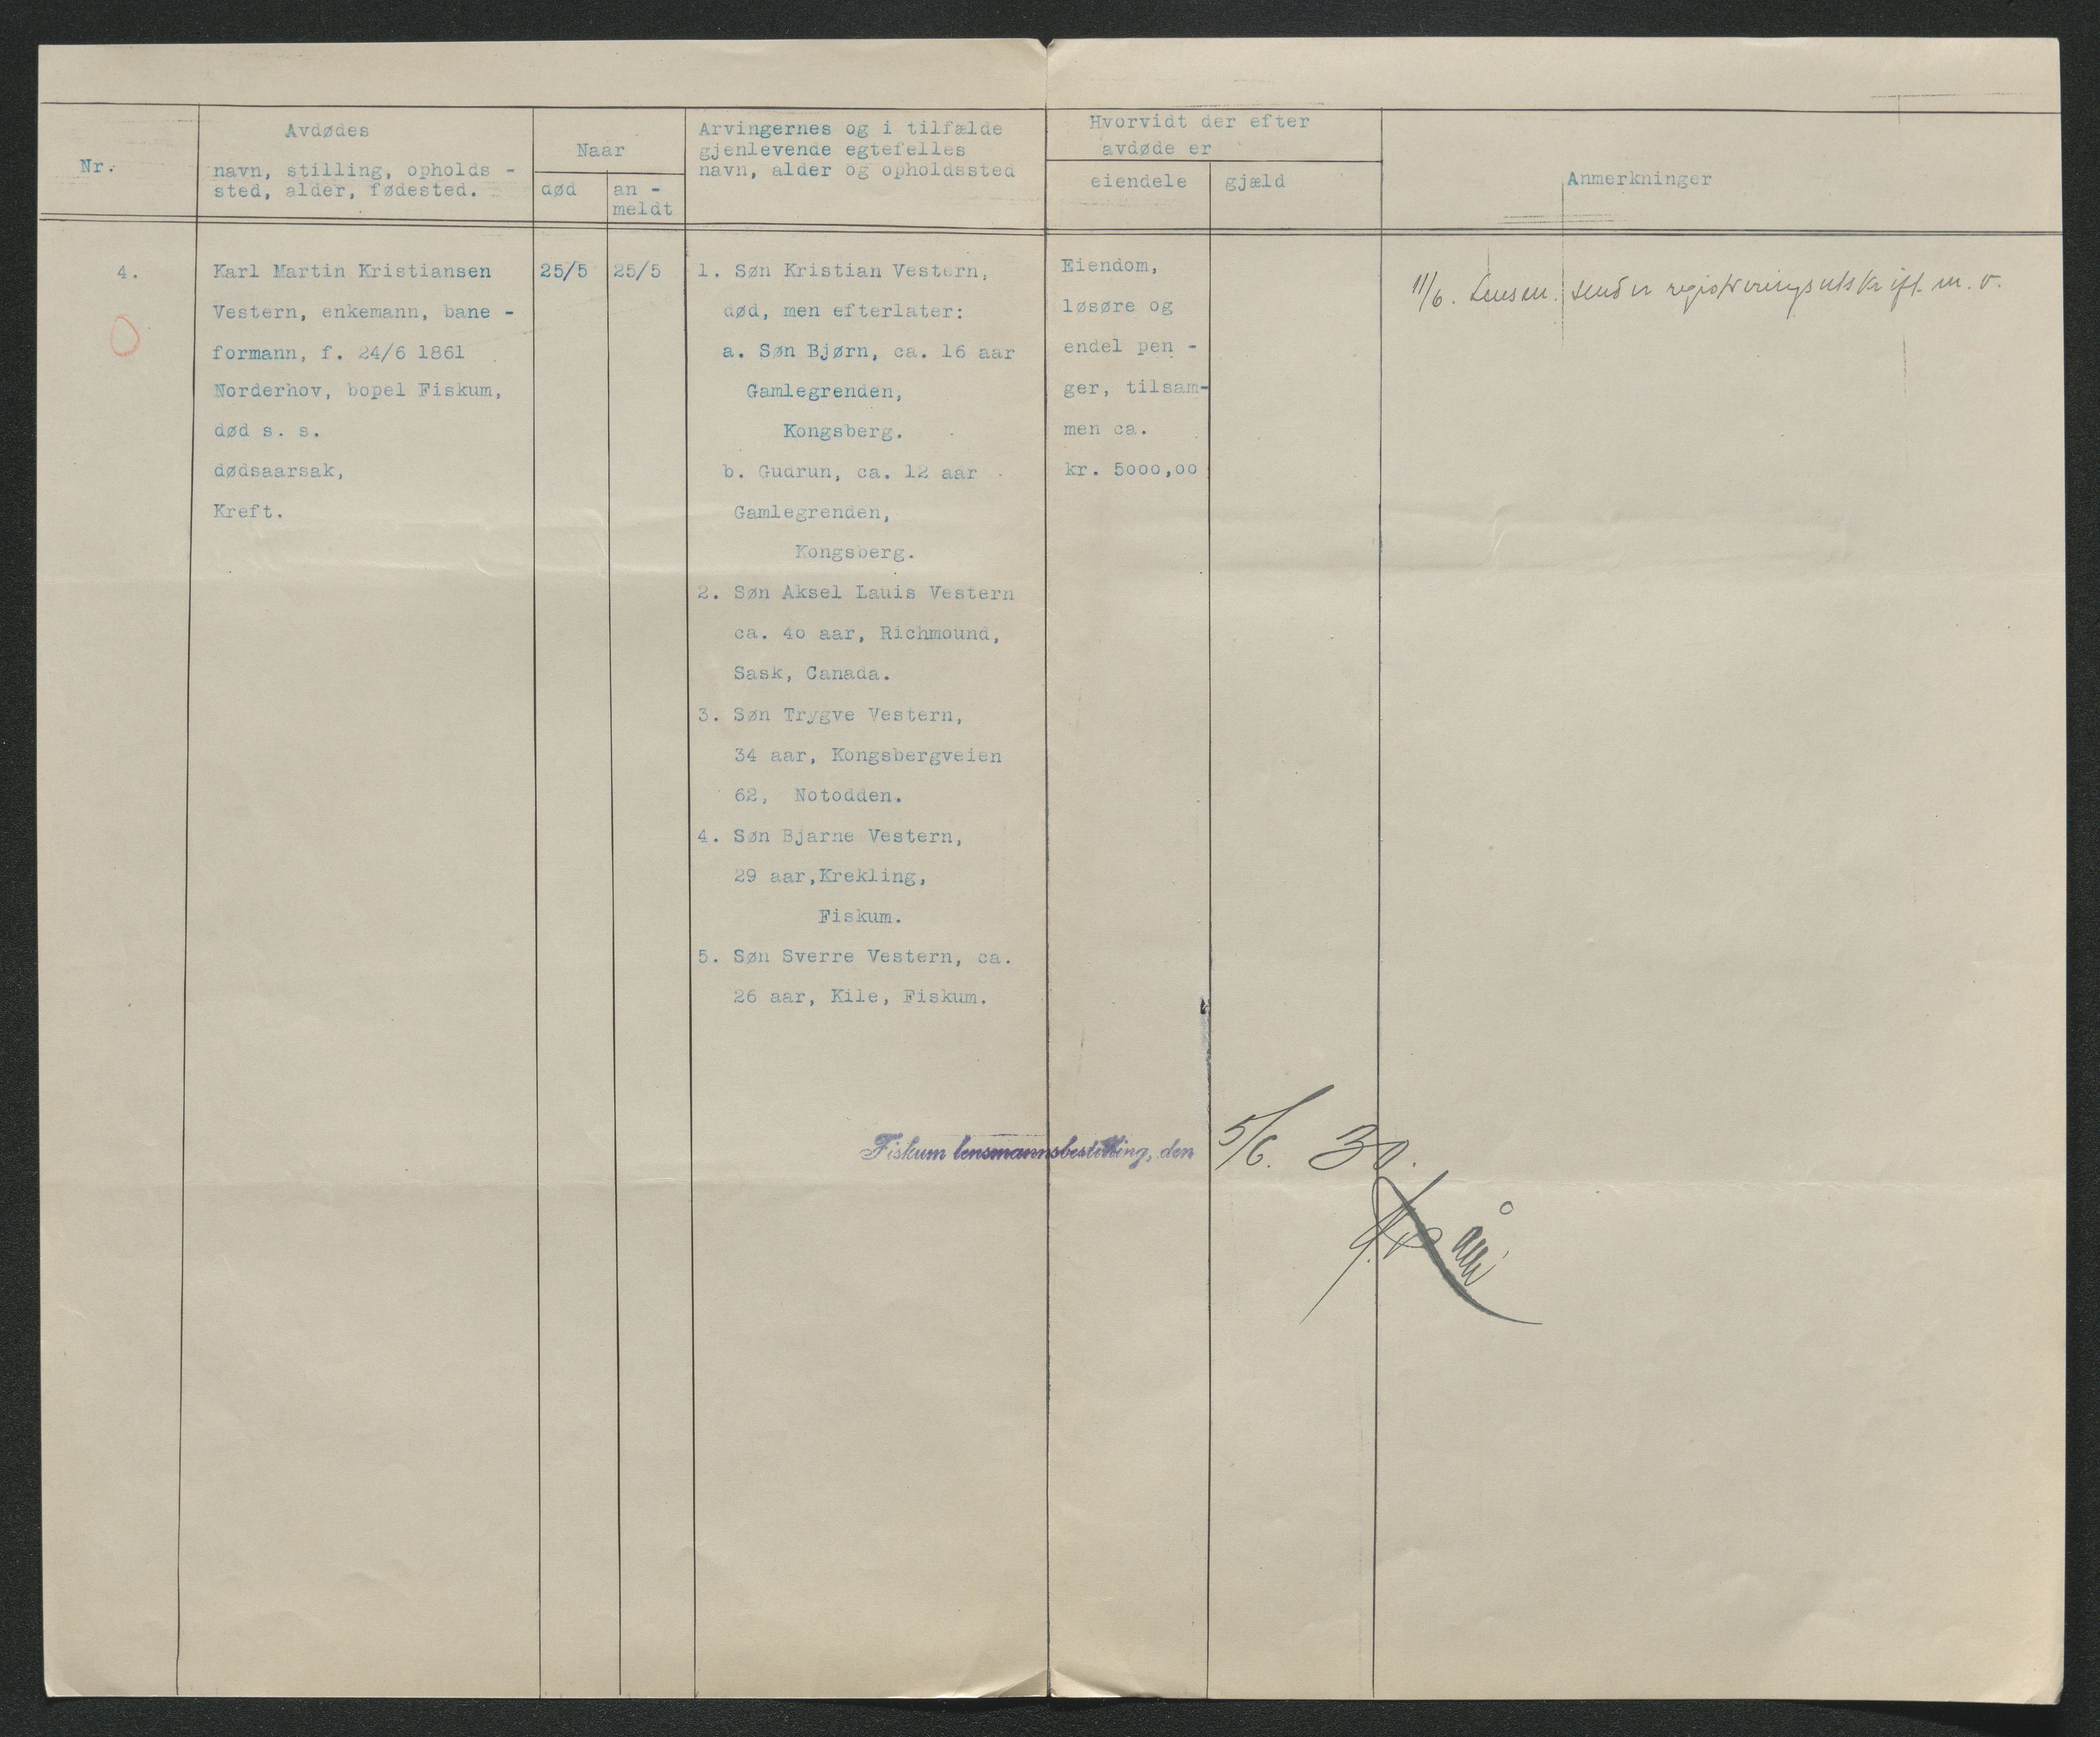 Nr.
Avdødes
navn, stilling, opholds -
sted, alder, fødested.
Naar
død
an -
meldt
Arvingernes og i tilfælde
gjenlevende egtefelles
navn, alder og opholdssted
Hvorvidt der efter
avdøde er
eiendele
gjæld
Anmerkninger
4.
Karl Martin Kristiansen
Vestern, enkemann, bane -
formann, f. 24/6 1861
Norderhov, bopel Fiskum,
død s. s.
dødsaarsak,
Kreft.
25/5
25/5
1. Søn Kristian Vestern,
død, men efterlater:
a. Søn Bjørn, ca. 16 aar
Gamlegrenden,
Kongsberg.
b. Gudrun, ca. 12 aar
Gamlegrenden,
Kongsberg.
2. Søn Aksel Lauis Vestern
ca. 4o aar, Richmound,
Sask, Canada.
3. Søn Trygve Vestern,
34 aar, Kongsbergveien
62, Notodden.
4. Søn Bjarne Vestern,
29 aar,Krekling,
Fiskum.
5. Søn Sverre Vestern, ca.
26 aar, Kile, Fiskum.
Eiendom,
løsøre og
endel pen -
ger, tilsam-
men ca.
kr. 5ooo,oo
11/6. Lensm. sender registreringsutskrift m. v.
Fiskum lensmannsbestilling, den 5/6. 30.